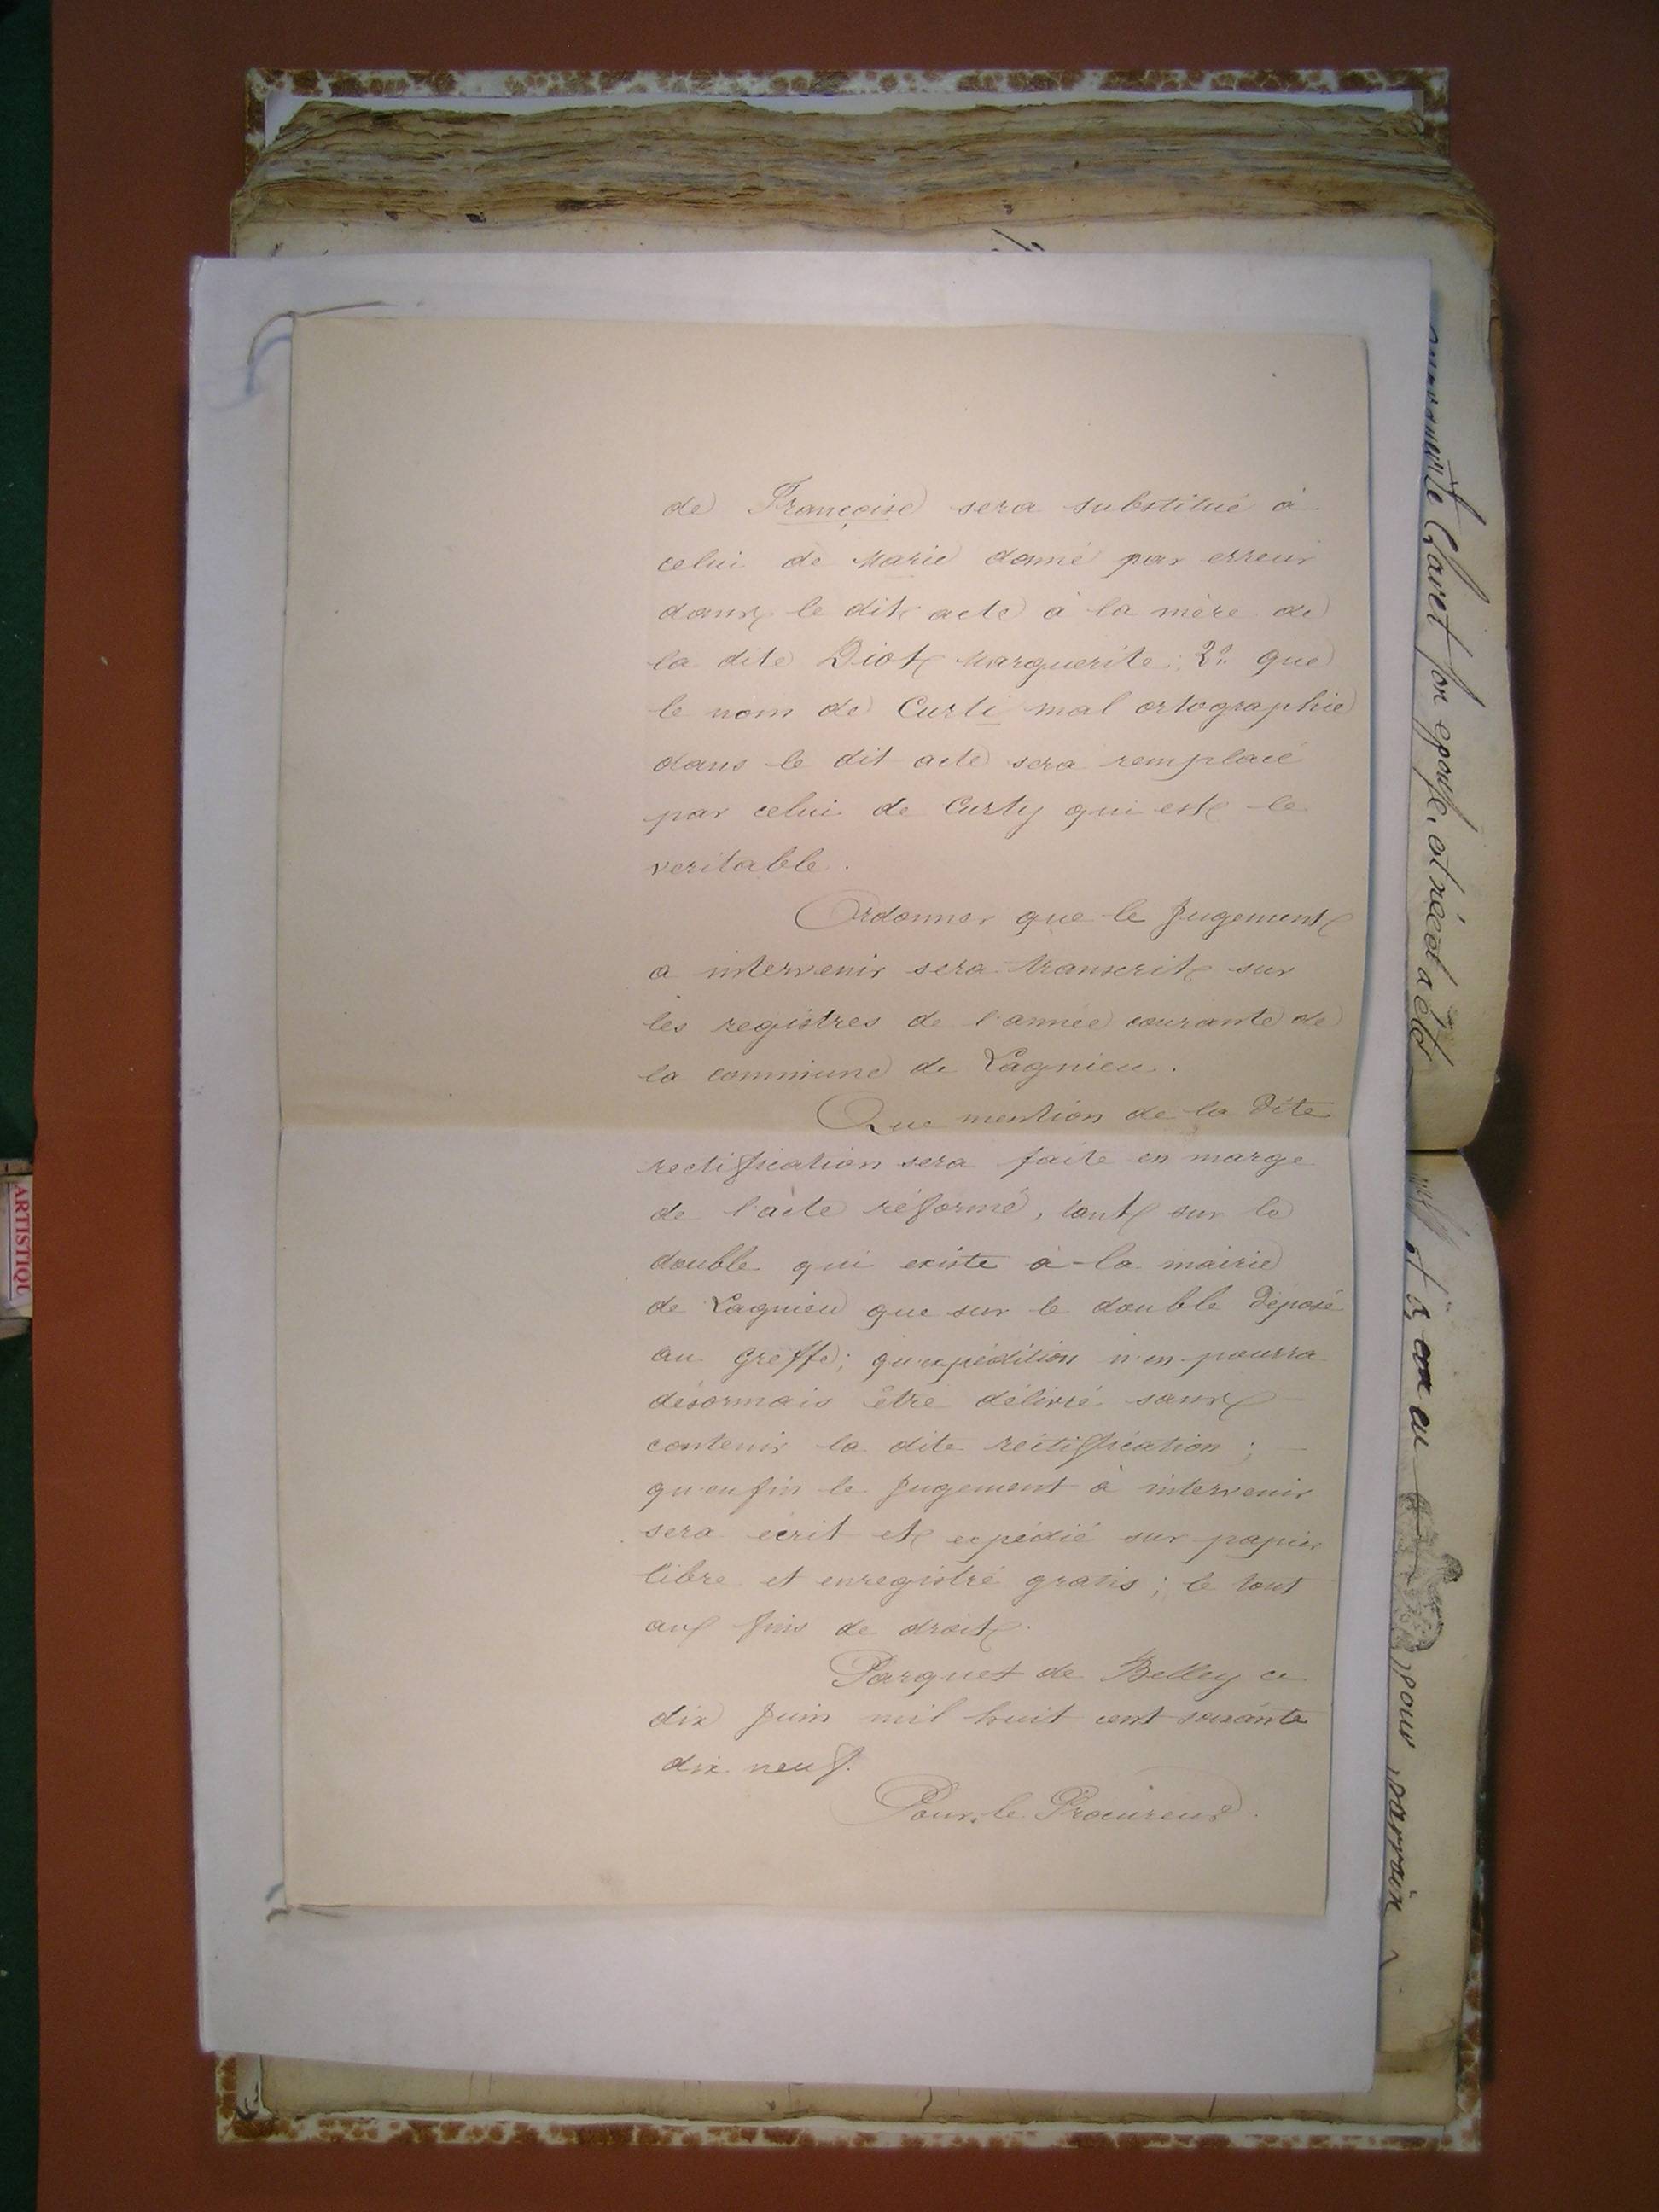 de Françoise sera substitué à
celui de Marie donné par erreur
dans le dit acte à la mère de
la dite Diot Marguerite; 2º que
le nom de Curti mal ortographié
dans le dit acte sera remplacé
par celui de Curty qui est le
veritable.
Ordonner que le Jugement
a intervenir sera transcrit sur
les registres de l'année courante de
la commune de Lagnieu.
Que mention de la dite
rectification sera faite en marge
de l'acte réformé, tant sur le
double qui existe à la mairie
de Lagnieu que sur le double déposé
au Greffe; qu'expédition n'en pourra
désormais être délivré sans
contenir la dite rectification;
qu'enfin le Jugement à intervenir
sera écrit et expédié sur papier
libre et enregistré gratis; le tout
aux fins de droit.
Parquet de Belley ce
dix Juin mil huit cent soixante
dix neuf.
Pour le Procureur.
Claret son epouse, est née et a été
pour parrain
ARTISTIQU